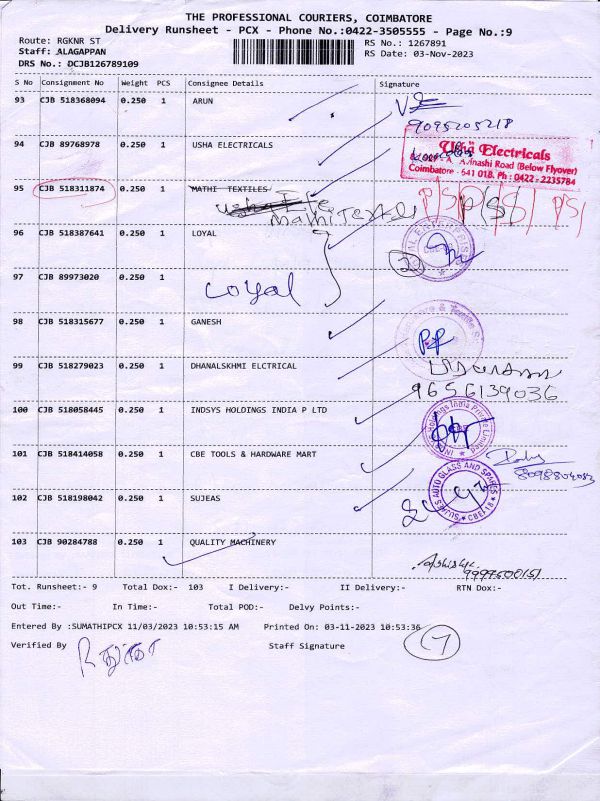 THE PROFESSIONAL COURIERS, COIMBATORE
Delivery Runsheet - PCX - Phone No.:0422-3505555 - Page No.:9
Route: RGKNR ST
RS No.: 1267891
Staff: ALAGAPPAN
RS Date: 03-Nov-2023
DRS No.: DCJB126789109
S No Consignment No Weight PCS Consignee Details Signature
93 CJB 518368094 0.250 1 ARUN
9095205218
94 CJB 89768978 0.250 1 USHA ELECTRICALS
Usha Electricals
Avinashi Road (Below Flyover)
Coimbatore - 641 018. Ph : 0422 - 2235784
95 CJB 518311874 0.250 1 MATHI TEXTILES
mathi Textile
96 CJB 518387641 0.250 1 LOYAL
2
97 CJB 89973020 0.250 1
Loyal
98 CJB 518315677 0.250 1 GANESH
99 CJB 518279023 0.250 1 DHANALSKHMI ELCTRICAL
9656139036
100 CJB 518058445 0.250 1 INDSYS HOLDINGS INDIA P LTD
101 CJB 518414058 0.250 1 CBE TOOLS & HARDWARE MART
8098804083
102 CJB 518198042 0.250 1 SUJEAS
SUJEAS AUTO GLASS AND SPARES
CBE-18
103 CJB 90284788 0.250 1 QUALITY MACHINERY
Tot. Runsheet:- 9 Total Dox:- 103 I Delivery:- II Delivery:- RTN Dox:-
Out Time:- In Time:- Total POD:- Delvy Points:-
Entered By :SUMATHIPCX 11/03/2023 10:53:15 AM Printed On: 03-11-2023 10:53:36
Verified By Staff Signature